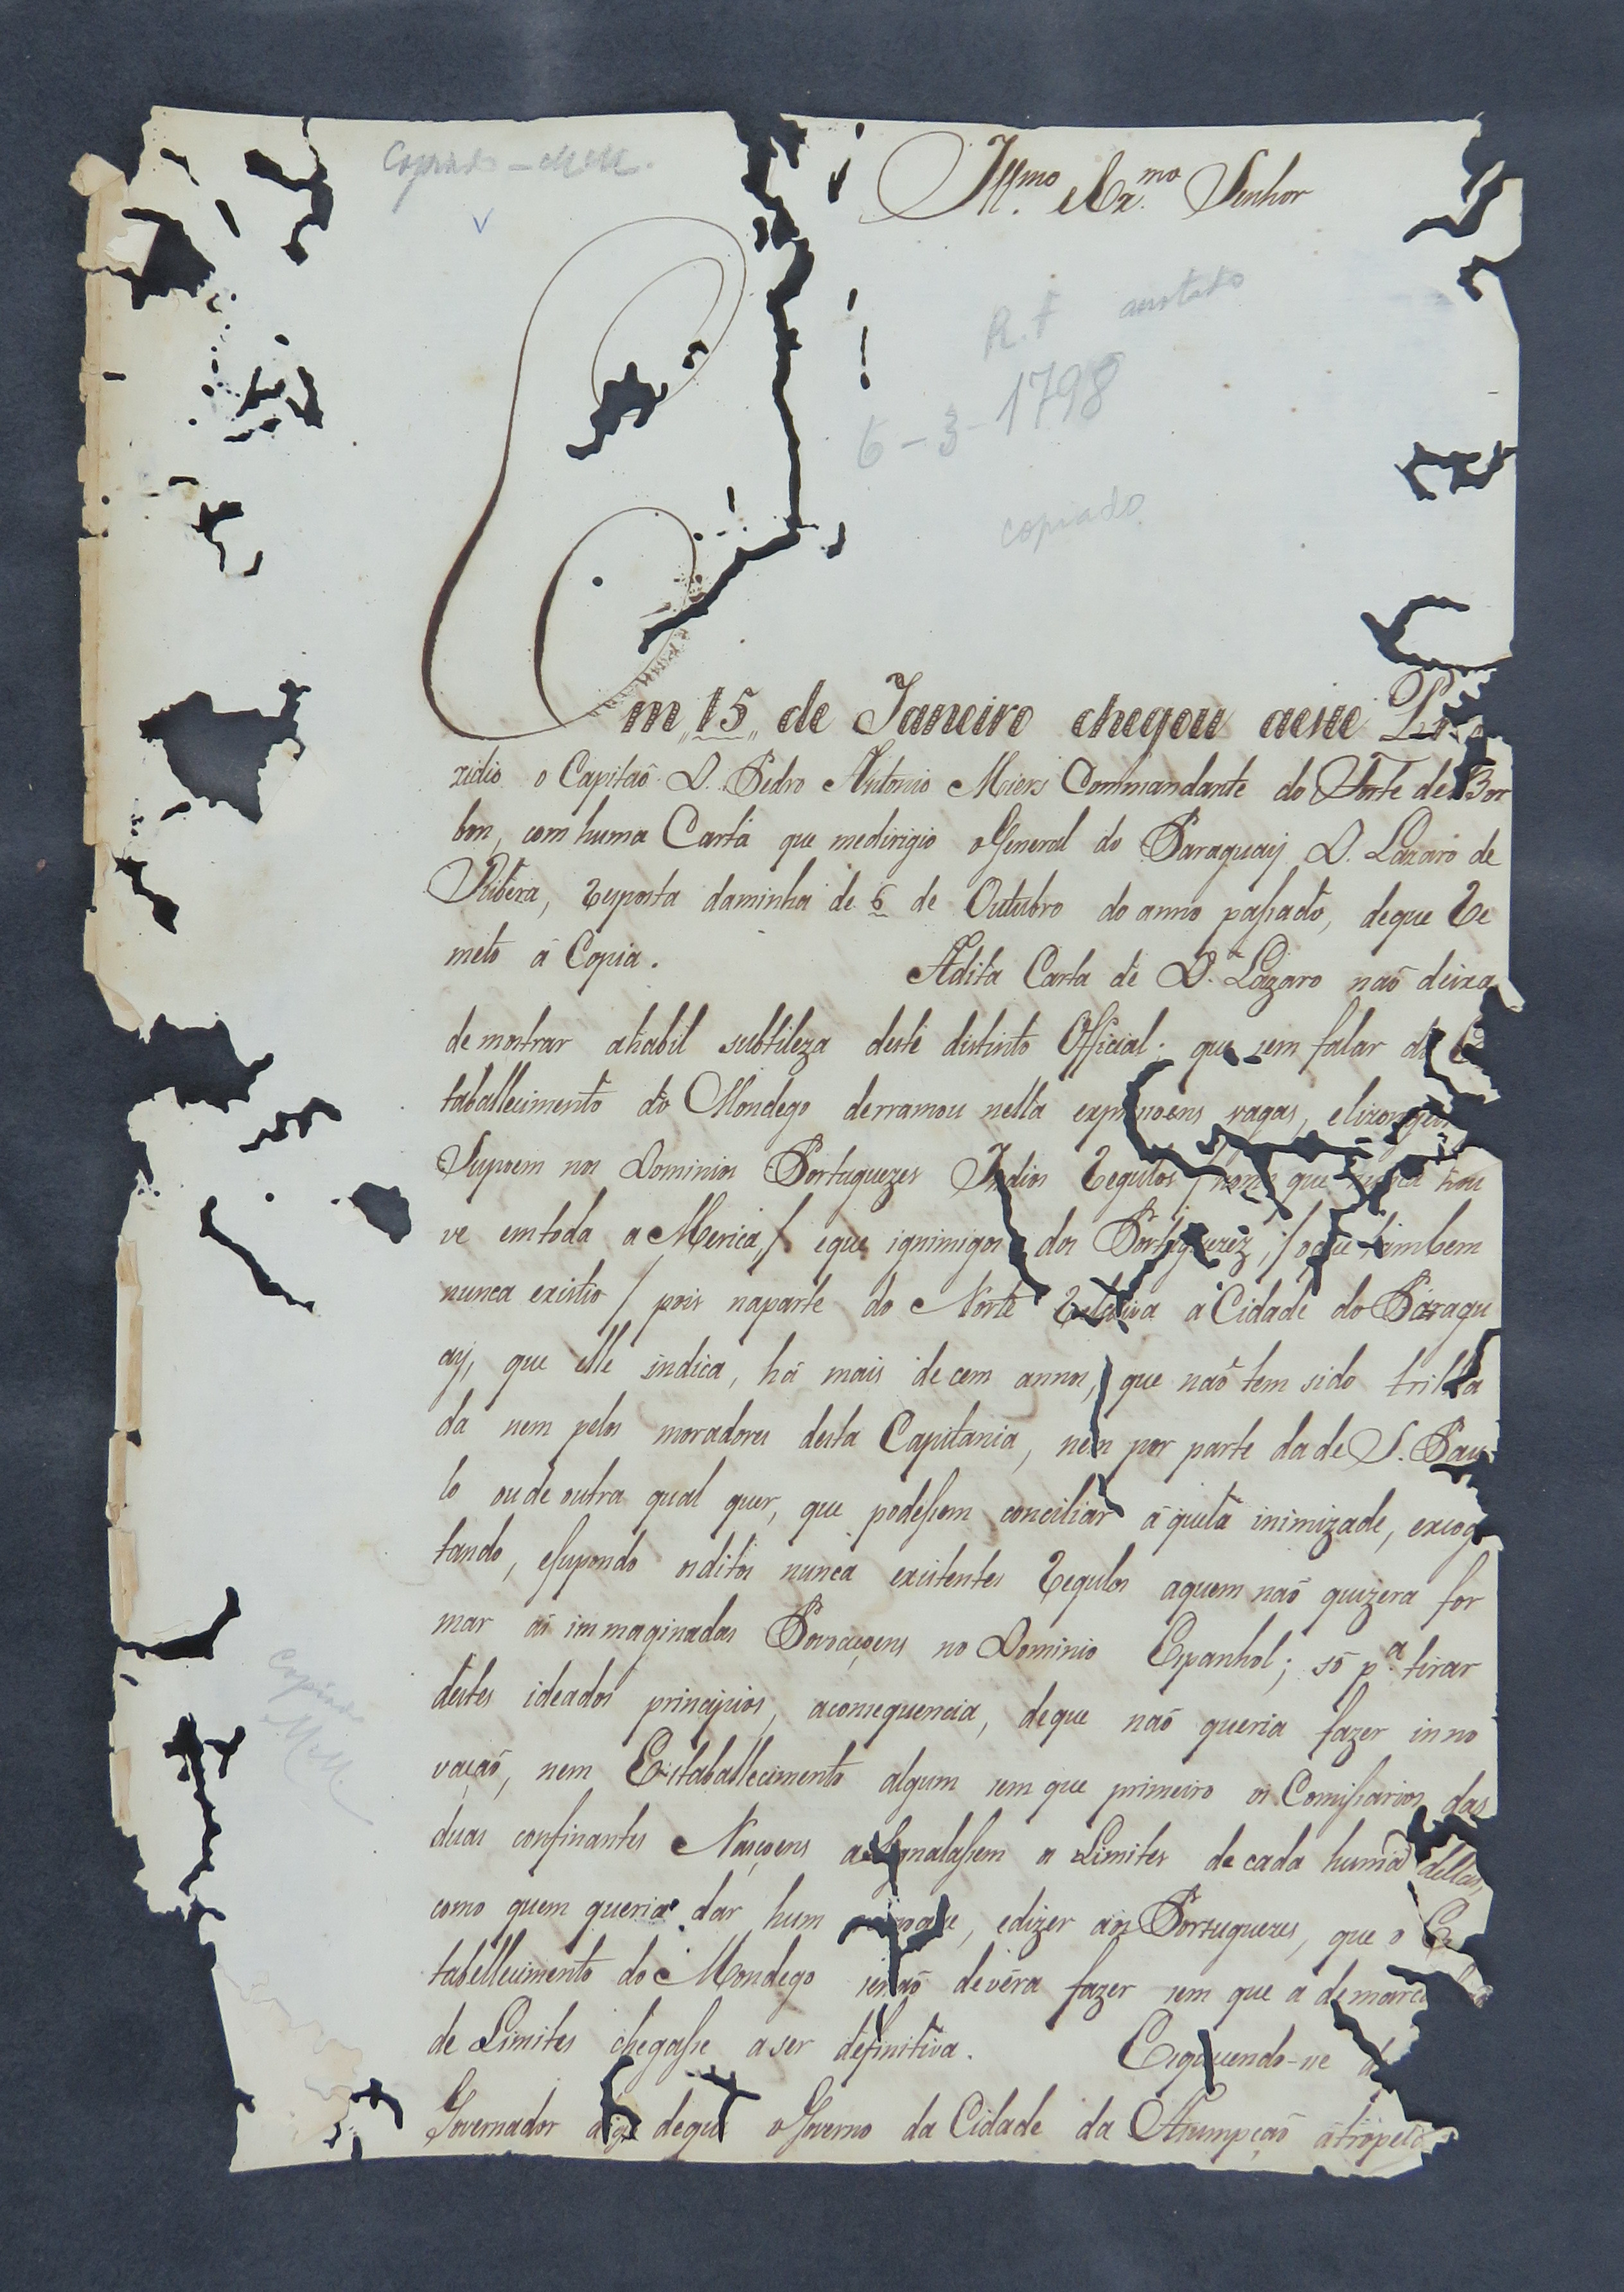 Copiado
Ill.mo e Ex.mo Senhor
R. F anotado
6-3-1798
copiado
Em "15" de Janeiro chegou aeste Pre
zidio o Capitaõ D. Pedro Antonio Miers Commandante do Forte de Bor
bon, com huma Carta que medirigio oGeneral do Paraguay D. Lazaro de
Ribera, resposta daminha de 6 de Outubro do anno passado, deque re
meto a Copia. Adita Carta de D. Lazaro naõ deixa
de mostrar ahabil subtileza deste distinto Official; que sem falar do Es
taballecimento do Mondego derramou nella expressoens vagas, elizongeir
Supoem nos Dominios Portuguezes Indios regulos / nome que nunca hou
ve emtoda aMerica / eque ignimigos dos Portuguez, / oque tambem
nunca existio / pois naparte do Norte relativa a Cidade do Paragu
ay, que elle indica, há mais de cem annos, que naõ tem sido trilha
da nem pelos moradores desta Capitania, nem por parte da de S. Pau
lo oude outra qual quer, que podessem conciliar áquela inimizade, excog
tando, esupondo osditos nunca existentes regulos aquem naõ quizera for
mar as immaginadas Povoaçoens no Dominio Espanhol; só p.a tirar
destes ideados principios, aconsequencia, deque naõ queria fazer inno
vaçaõ, nem Estaballecimento algum sem que primeiro os Comissarios das
duas confinantes Naçoens assignalassem os Limites de cada huma dellas,
como quem queria dar hum, edizer aos Portuguezes, que o Es
tabellecimento do Mondego senaõ devêra fazer sem que a demarca
de Limites chegasse aser definitiva. Esquecendo-se d
Governador deque oGoverno da Cidade da Assumpçaõ atropelo
Copiado